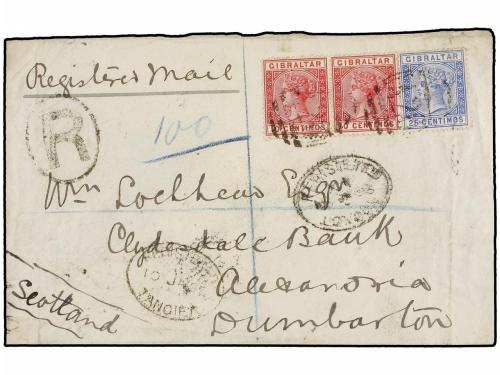 GIBRALTAR GIBRALTAR GIBRALTAR
10 CENTIMOS 10 CENTIMOS 25 CENTIMOS
Registered Mail
R
100
REGISTERED
LONDON
Wm Lochhead Esqr
Clydesdale Bank
Alexandria
Dumbarton
Scotland
REGISTERED
10 JA
TANGIER